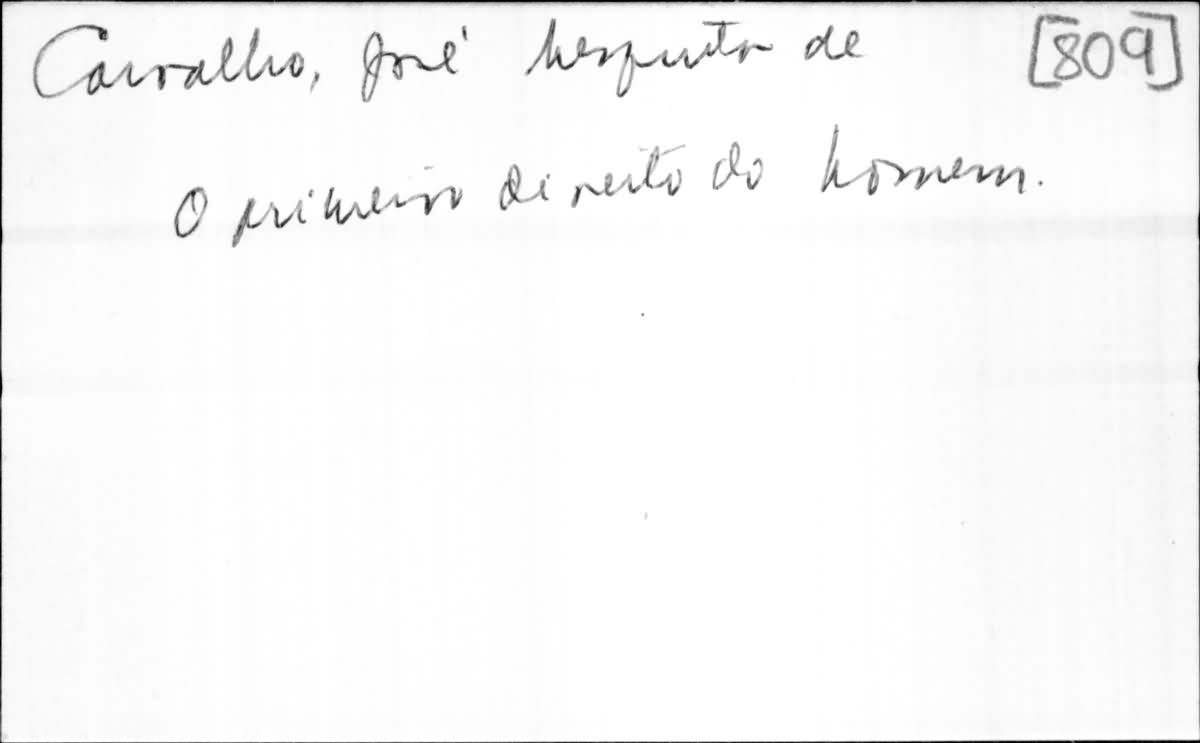 Carvalho, José de [809]
O primeiro direito do homem.